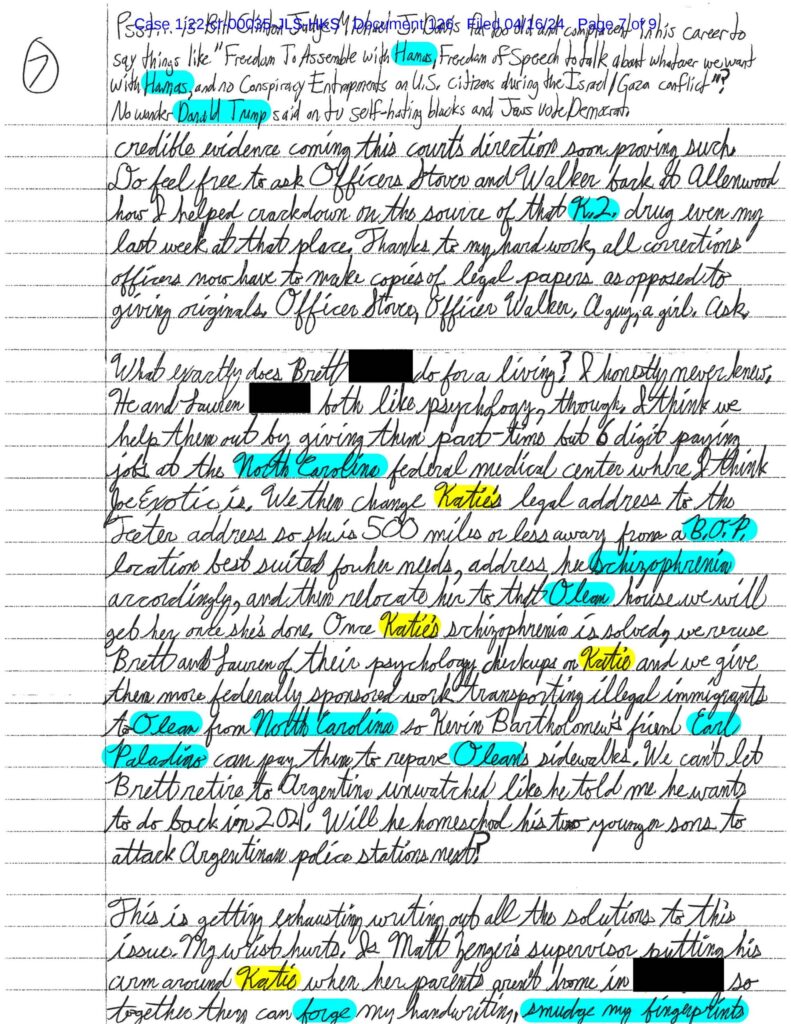 Case 1:22-cr-00035-JLS-HKS Document 126 Filed 04/16/24 Page 7 of 9
7
Psst... is Bill Clinton Judge Michael J. Davis far too old and complacent in his career to
say things like "Freedom To Assemble with Hamas, Freedom of Speech to talk about whatever we want
with Hamas, and no Conspiracy Entrapments on U.S. citizens during the Israel/Gaza conflict"?
No wonder Donald Trump said on tv self-hating blacks and Jews vote Democrat.
credible evidence coming this courts direction soon proving such.
Do feel free to ask Officers Stover and Walker back at Allenwood
how I helped crackdown on the source of that K.2. drug even my
last week at that place. Thanks to my hard work, all corrections
officers now have to make copies of legal papers as opposed to
giving originals. Officer Stover, Officer Walker. A guy, a girl. Ask.
What exactly does Brett do for a living? I honestly never knew.
He and Lauren both like psychology, though. I think we
help them out by giving them part-time but 6 digit paying
jobs at the North Carolina federal medical center where I think
Joe Exotic is. We then change Katie's legal address to the
Teeter address so she is 500 miles or less away from a B.O.P.
location best suited for her needs, address her schizophrenia
accordingly, and then relocate her to that Olean house we will
get her once she's done. Once Katie's schizophrenia is solved, we recuse
Brett and Lauren of their psychology checkups on Katie and we give
them more federally sponsored work transporting illegal immigrants
to Olean from North Carolina so Kevin Bartholomew's friend Earl
Paladino can pay them to repave Olean's sidewalks. We can't let
Brett retire to Argentina unwatched like he told me he wants
to do back in 2021. Will he homeschool his two younger sons to
attack Argentinan police stations next?
This is getting exhausting writing out all the solutions to this
issue. My wrist hurts. Is Matt Zenger's supervisor putting his
arm around Katie when her parents aren't home in so
together they can forge my handwriting, smudge my fingerprints